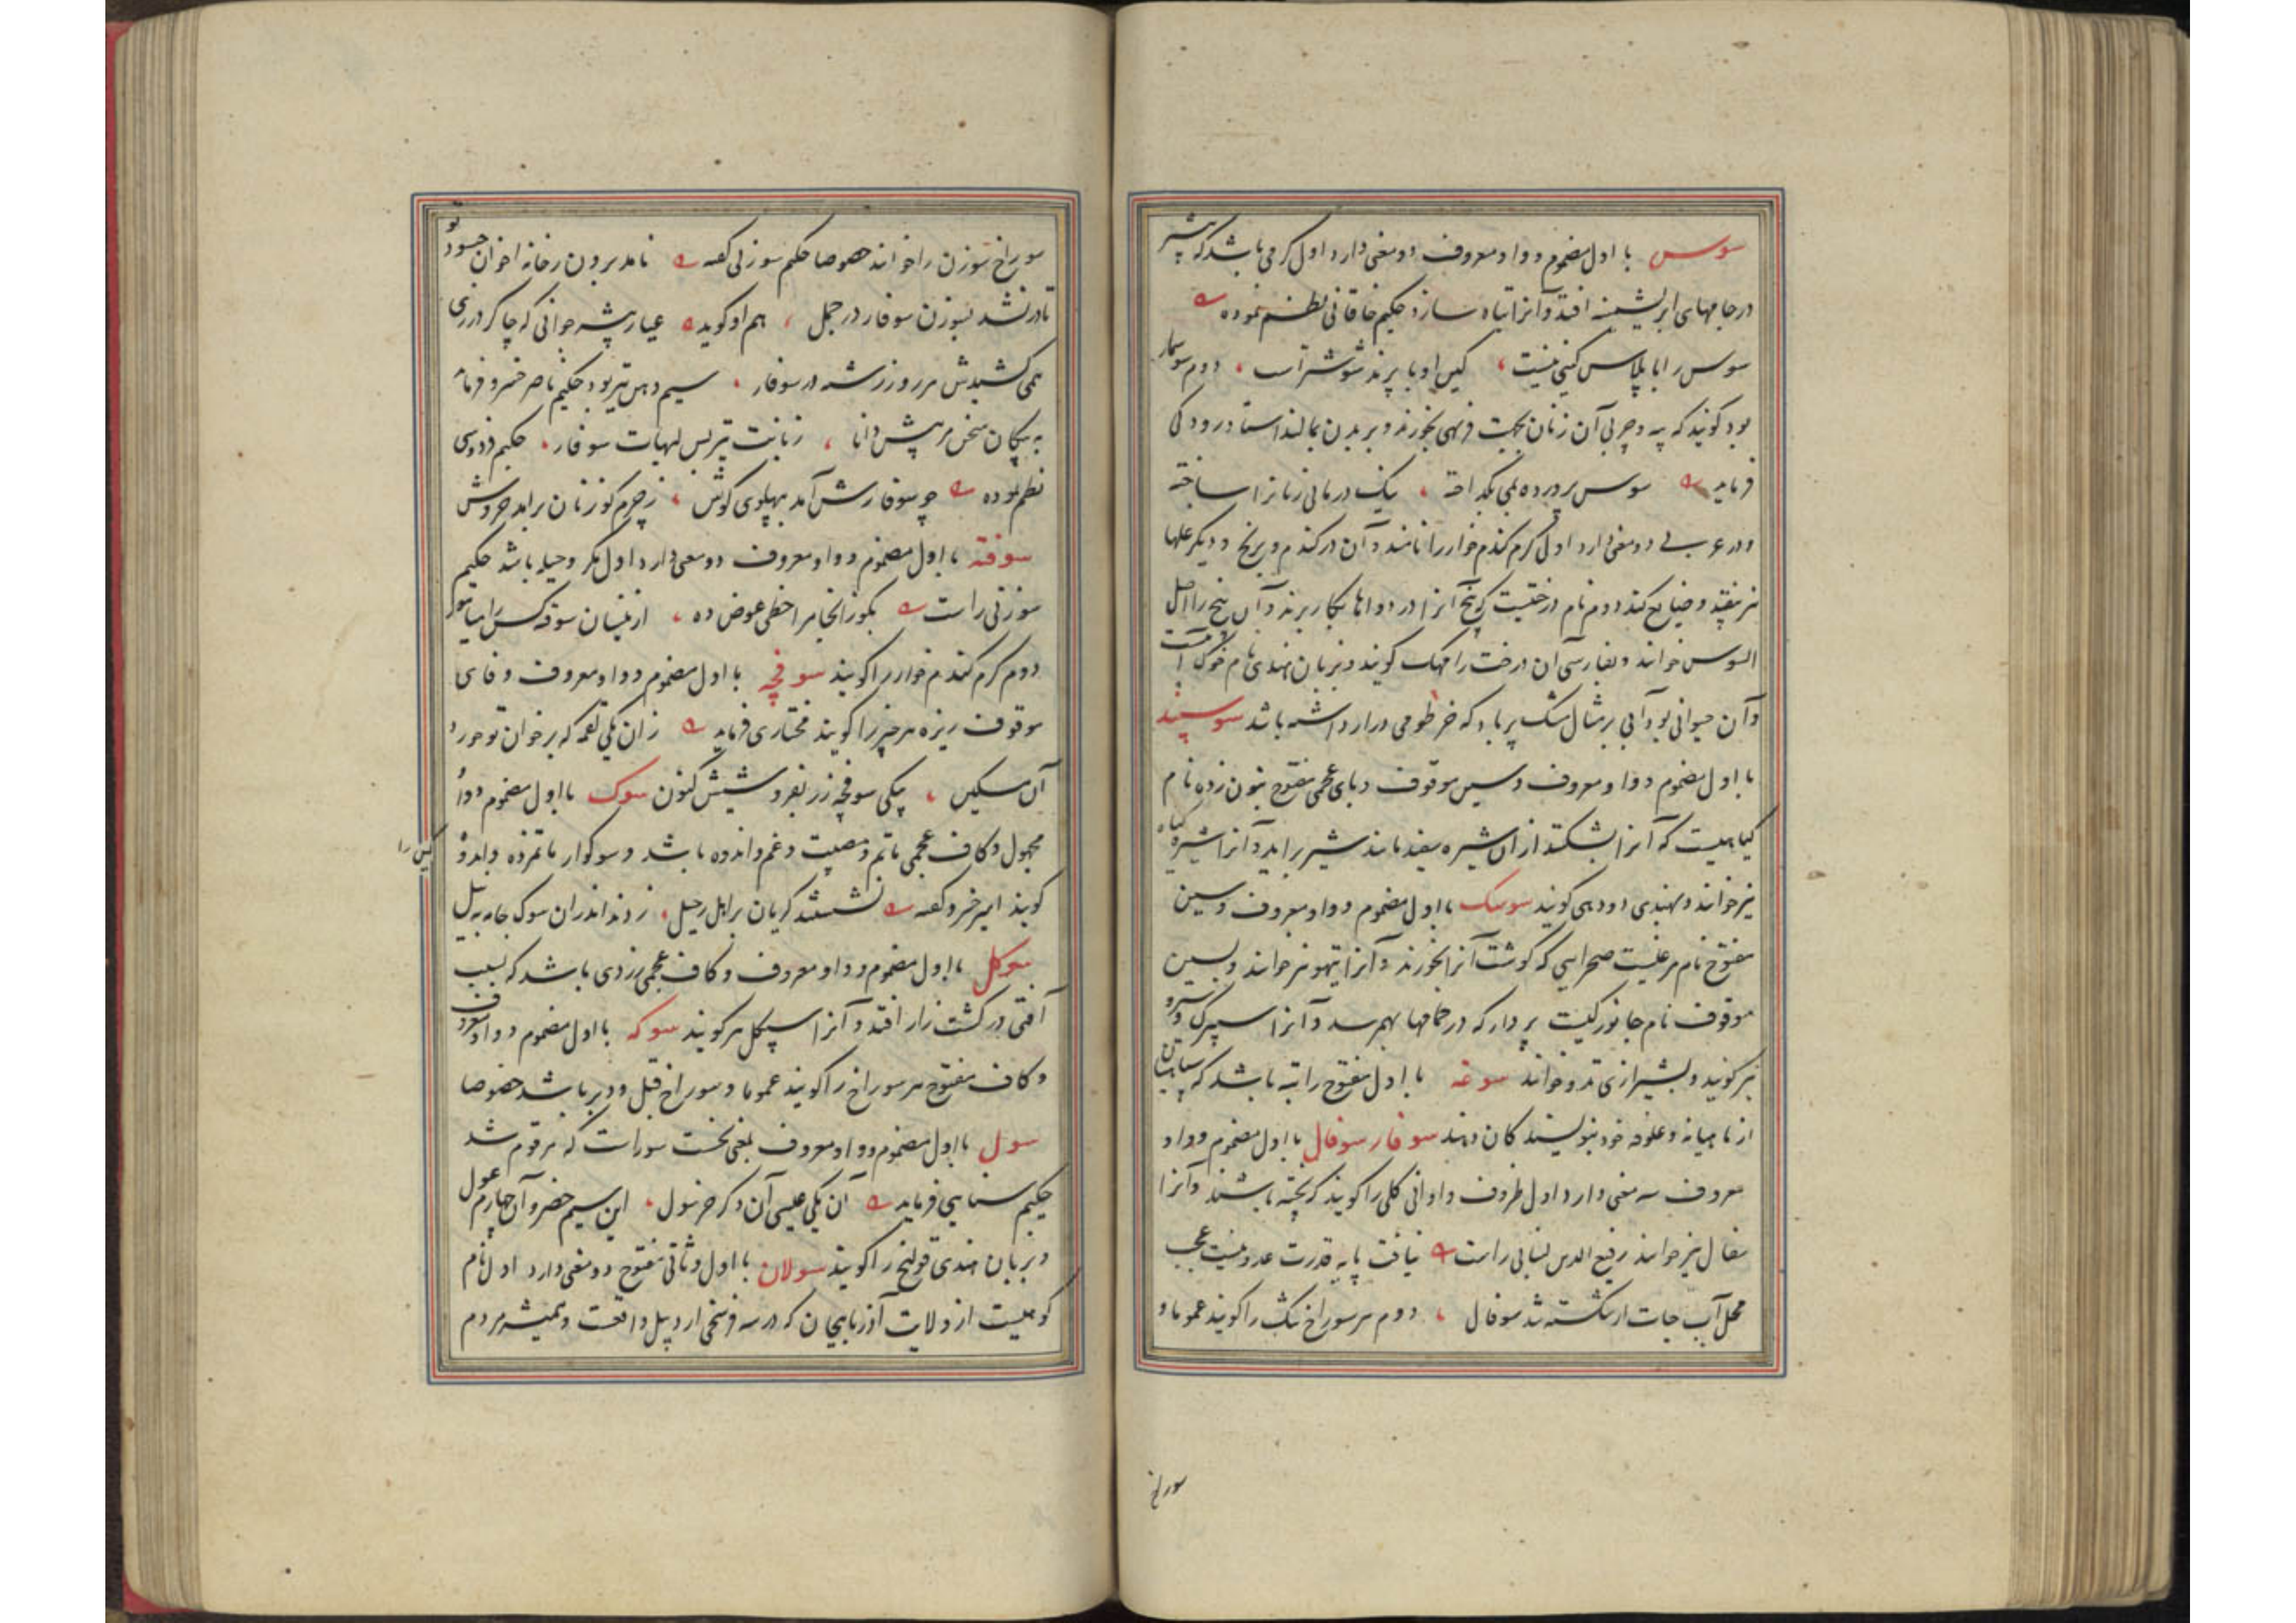 سوس با اول مضموم و واو معروف دو معنی دارد اول کرمی باشد که بیشتر
در جامهای ابریشمینه افتد و آنرا تباه سازد حکیم خاقانی نظم نموده
سوس را با پلاس کینی نیست کین او با پرند شوشتر است دوم سوسمار
بود گویند که پیه و چربی آن زنان بجهت فربهی بخورند و بر بدن بمالند استاد رودکی
فرماید سوس پرورده بمی بگداخته نیک درمانی زنانرا ساخته
و در عربی دو معنی دارد اول کرم گندم خوار را نامند و آن در گندم و برنج و دیگر غلها
نیز بیفتد و ضایع کند دوم نام درختیست که بیخ آنرا در دواها بکار برند و آن بیخ را اصل
السوس خوانند و بفارسی آن درخت را مهک گویند و بزبان هندی نام خوک است
و آن حیوانی بود آبی بر مثال مشک پر باد که خرطومی دراز داشته باشد سوسپند
با اول مضموم و واو معروف و سین موقوف و بای عجمی مفتوح بنون زده نام
گیاهیست که آنرا بشکنند از آن شیره سفید مانند شیر برآید و آنرا شیر گیاه
نیز خوانند و بهندی دودهی گویند سوسک با اول مضموم و واو معروف و سین
مفتوح نام مرغیست صحرایی که گوشت آنرا بخورند و آنرا تیهو نیز خوانند و بسین
موقوف نام جانورکیست پردار که در حمامها بهم رسد و آنرا سیرک و
نیز گویند و بشیرازی تدو خوانند سوغه با اول مفتوح راتبه باشد که سپاهیان
از ماهیانه و علوفه خود بنویسندکان دهند سوفار سوفال با اول مضموم و واو
معروف سه معنی دارد اول ظروف و اوانی گلی را گویند که پخته باشند و آنرا
سفال نیز خوانند رفیع الدین لنبانی راست نیافت پایه قدرت عدو نیست عجب
محل آب حیات ار شکسته شد سوفال دوم هر سوراخ تنگ را گویند عموما و
سوراخ
سوراخ سوزن را خوانند خصوصا حکیم سوزنی گفته نامد برون ز خانه اخوان حسود تو
تا در نشد بسوزن سوفار در جمل هم او گوید عیار پیشه جوانی که چاکر درزی
همی کشیدش هر روز رشته در سوفار سیم دهن تیر بود حکیم ناصر خسرو فرماید
به پیکان سخن مر پیش دانا زبانت تیر بس لبهات سوفار حکیم فردوسی
نظم نموده چو سوفارش آمد بپهلوی گوش ز چرم گوزنان برآمد خروش
سوفته با اول مضموم و واو معروف دو معنی دارد اول مکر و حیله باشد حکیم
سوزنی راست
دوم کرم گندم خوار را گویند سوفچه با اول مضموم و واو معروف و فای
موقوف ریزه هر چیز را گویند مختاری فرماید زان یکی لقمه که بر خوان تو خورد
آن مسکین یکی سوفچه زر بفروشیش کنون سوک با اول مضموم و واو
مجهول و کاف عجمی ماتم و مصیبت و غم و اندوه باشد و سوکوار ماتم زده و اندوه
گین را
گویند امیر خسرو گفته نشستند گریان بر اهل رحیل زدند اندران سوک جامه به نیل
سوکل با اول مضموم و واو معروف و کاف عجمی زردی باشد که بسبب
آفتی در کشت زار افتد و آنرا سپکل نیز گویند سوکه با اول مضموم و واو معروف
و کاف مفتوح هر سوراخ را گویند عموما و سوراخ قبل و دبر باشد خصوصا
سول با اول مضموم و واو معروف بمعنی نخست سور است که مرقوم شد
حکیم سنایی فرماید آن یکی عیسی آن دگر خر سول این سیم خضر و آن چهارم غول
و بزبان هندی قولنج را گویند سولان با اول و ثانی مفتوح دو معنی دارد اول نام
کوهیست از ولایت آذربایجان که در سه فرسخی اردبیل واقعست و همیشه مردم